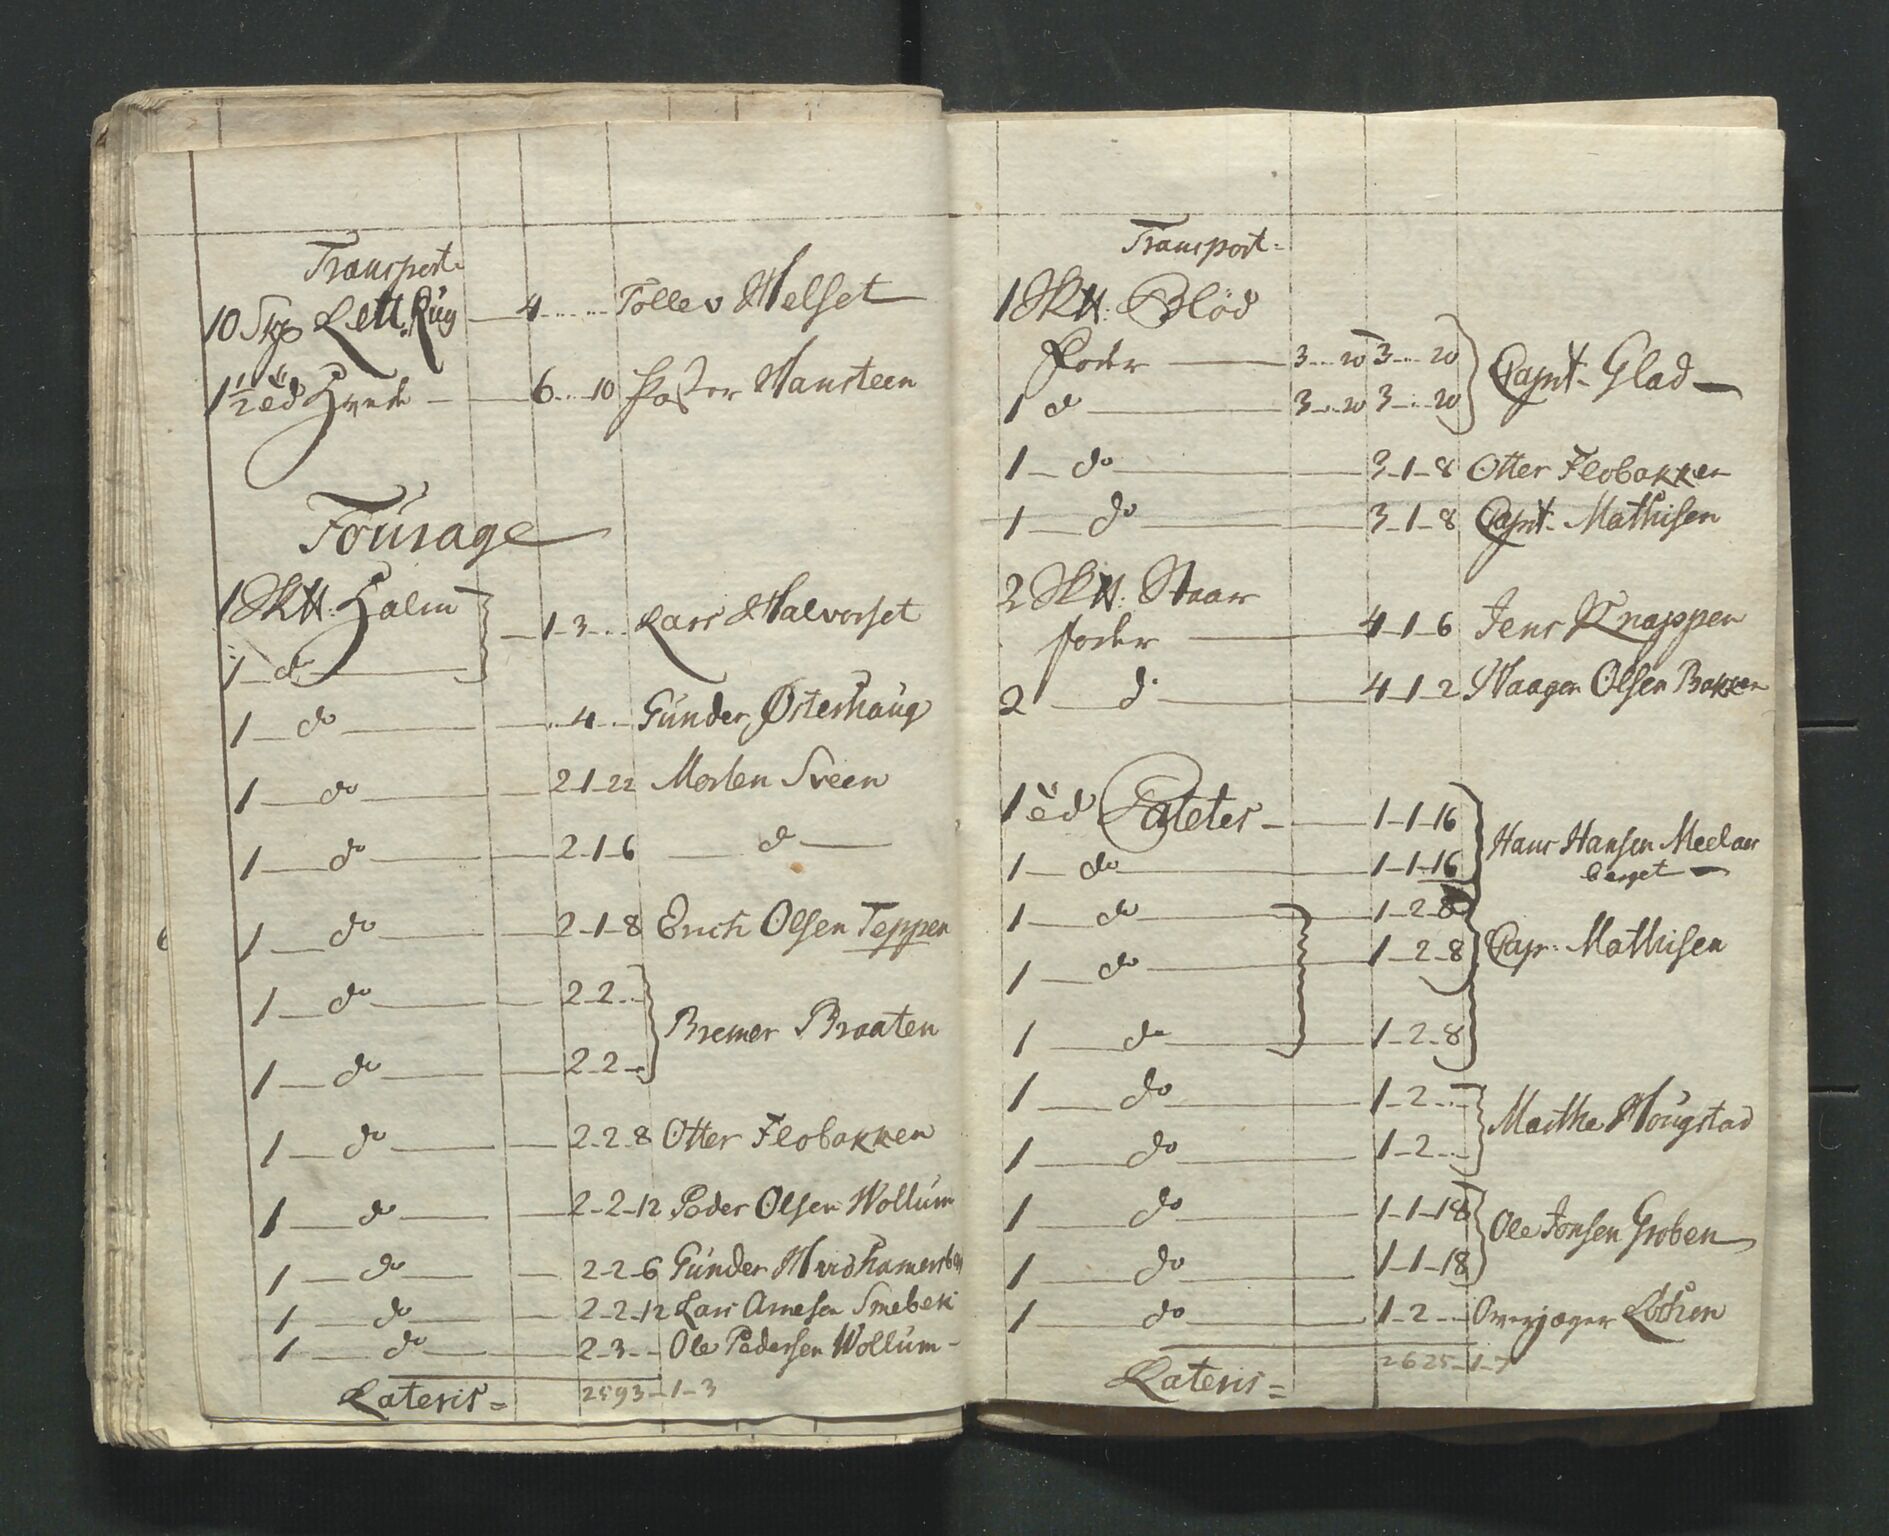 Transport
10 Skp Lett Rug — 4 .. .. Tollev Helset
1 1/2 td Hvede — 6 .. 10 Pastor Hansteen
Fourage
1 Sk℔: Halm
1 do — 1 - 3 .. Lars Halvorset
1 do — .. 4 .. Gunder Østerhaug
1 do — 2 - 1 - 22 Morten Sveen
1 do — 2 - 1 - 6 — do —
1 do — 2 - 1 - 8 Erich Olsen Teppen
1 do — 2 - 2 ..
Bremer Braaten
1 do — 2 - 2 ..
1 do — 2 - 2 - 8 Otter Flobakken
1 do — 2 - 2 - 12 Peder Olsen Wollum
1 do — 2 - 2 - 6 Gunder Hvidhamer
1 do — 2 - 2 - 12 Lars Arnesen Smebek
1 do — 2 - 3 .. Ole Pedersen Wollum -
Lateris = 2593 - 1 - 3
Transport =
1 Sk℔: Blöd
Foder — 3 .. 20 3 .. 20
Capt - Glad —
1 d — 3 .. 20 3 .. 20
1 do — 3 - 1 - 8 Otter Flobakken
1 do — 3 - 1 - 8 Capt - Mathisen
2 Sk℔: Staar
foder — 4 - 1 - 6 Jens Knappen
2 do — 4 - 1 - 2 Haagen Olsen Bakken
1 td Poteter — 1 - 1 - 16
Hans Hansen Meelar
1 do — 1 - 1 - 16
berget —
1 do — 1 - 2 - 8
1 do — 1 - 2 - 8 Cap: Mathisen
1 do — 1 - 2 - 8
1 do — 1 - 2 ..
Marthe Hougstad
1 do — 1 - 2 ..
1 do — 1 - 1 - 18
Ole Jonsen Groben
1 do — 1 - 1 - 18
1 do — 1 - 2 .. Overjæger Löchen
Lateris = 2625 - 1 - 7